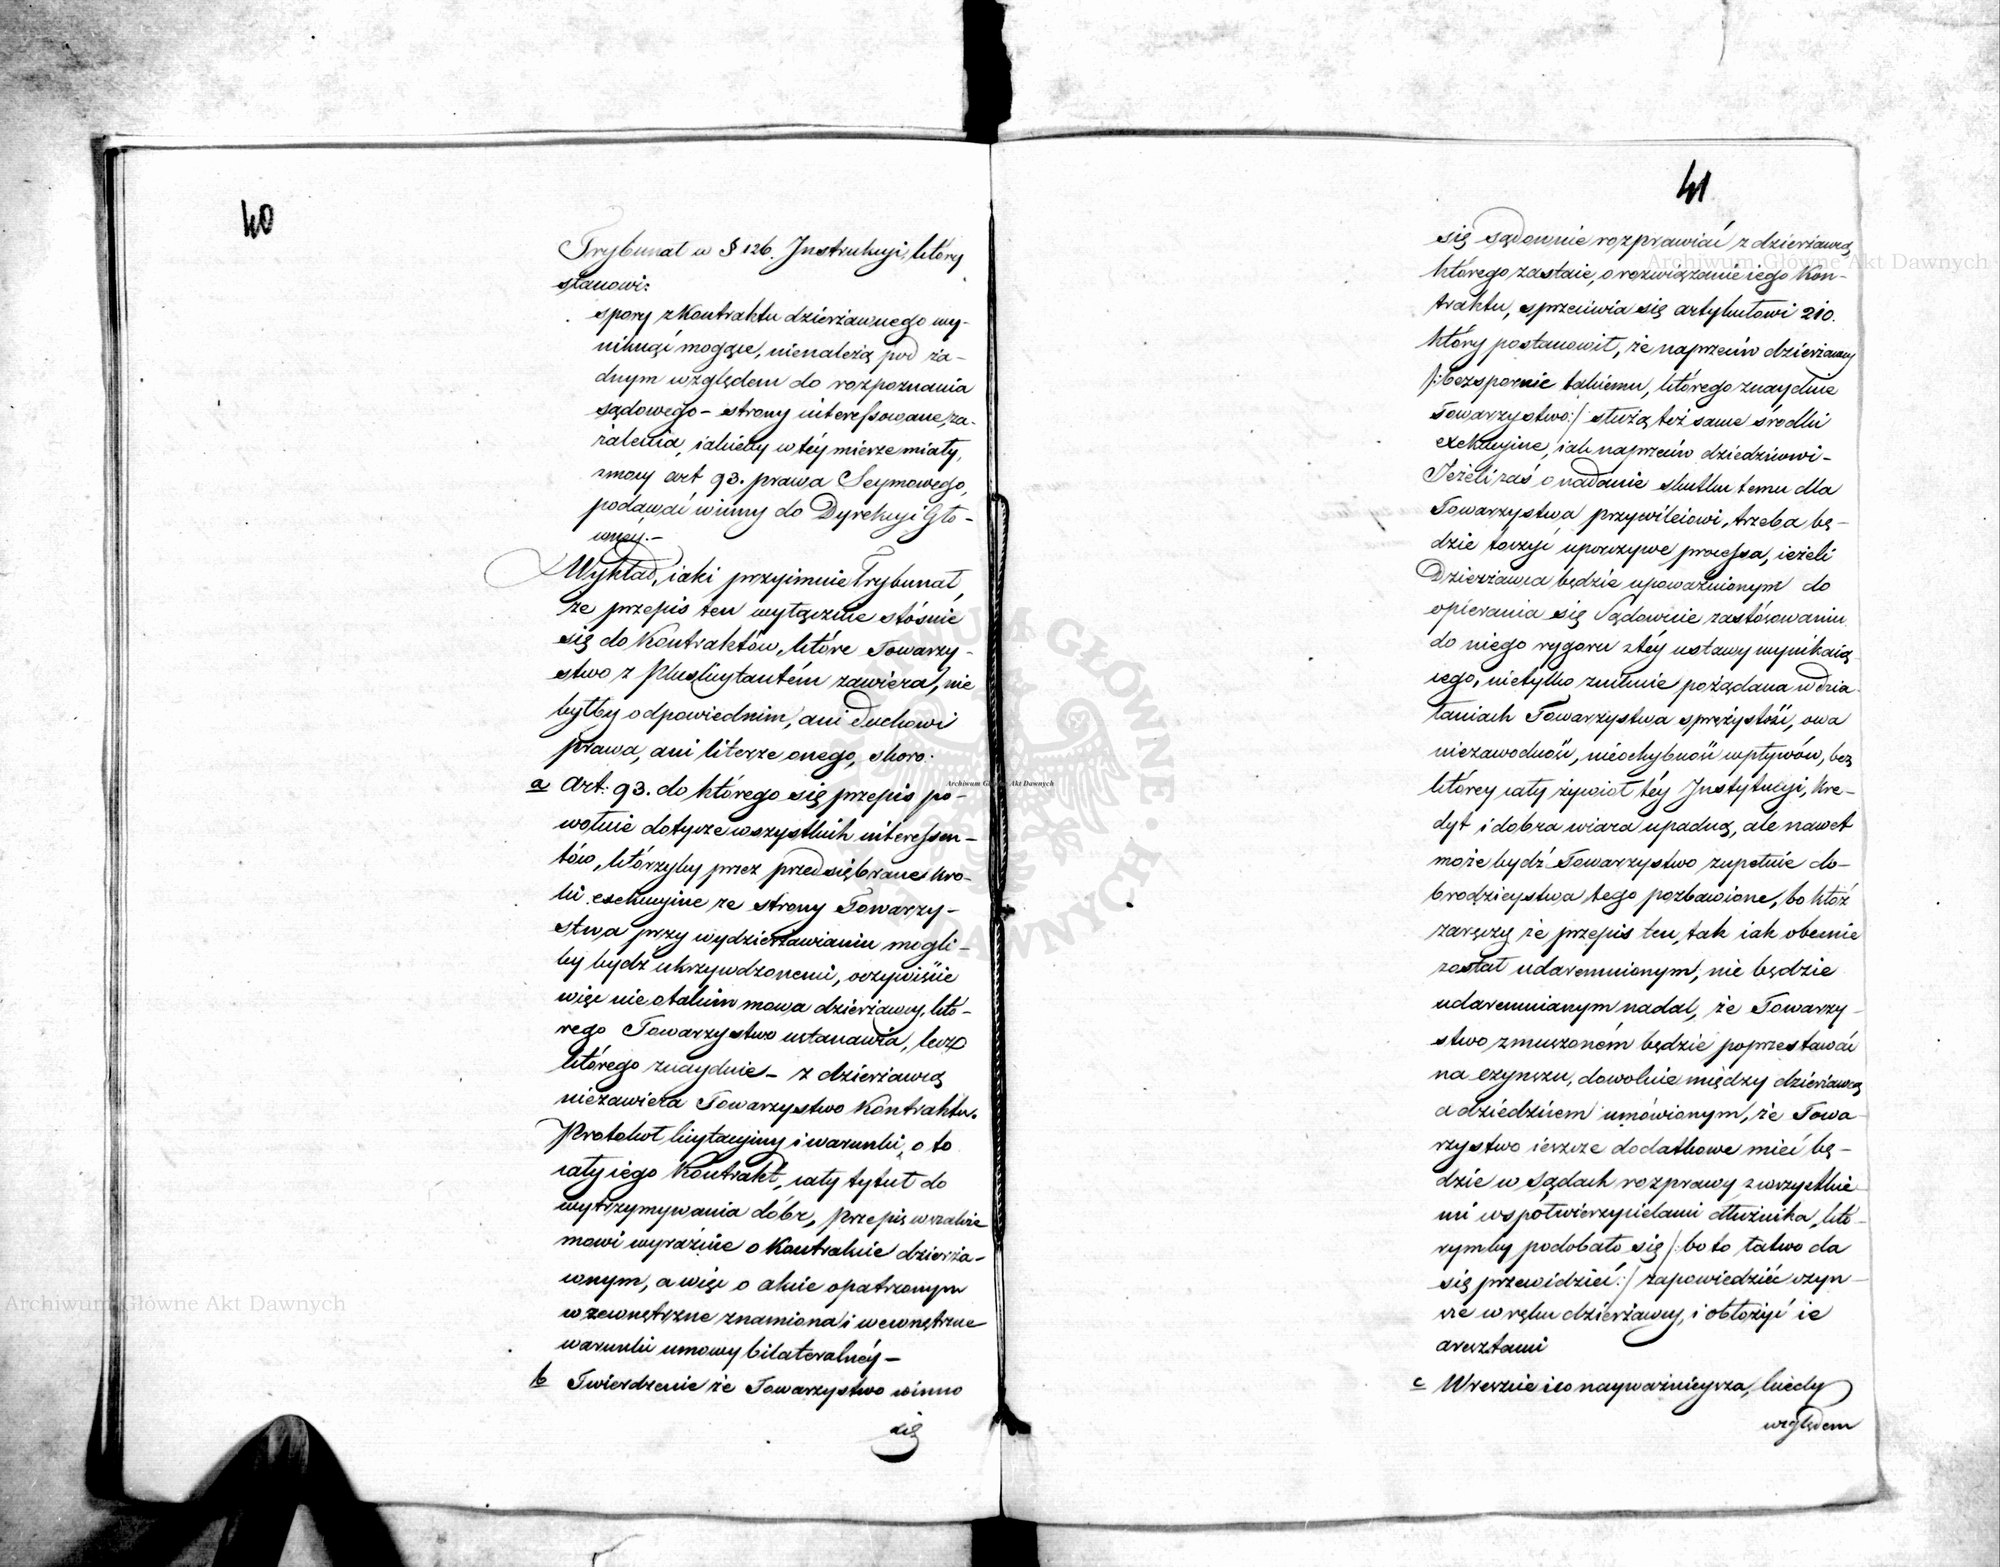 40
Trybunał w § 126. Instrukcyi, który
stanowi:
spory z Kontraktu dzierżawnego wy-
niknąć mogące, nienależą pod ża-
dnym względem do rozpoznania
sądowego – strony interessowane, za-
żalenia, iakieby w téy mierze miały,
z mocy art 93. prawa Seymowego,
podawać winny do Dyrekcyi Głó-
wnéy. –
Wykład, iaki przyimuie Trybunał,
że przepis ten wyłącznie stósuie
się do Kontraktów, które Towarzy-
stwo z Pluslicytantém zawiera, nie
byłby odpowiednim, ani duchowi
prawa, ani literze onego, skoro.
a Art: 93. do którego się przepis po-
wołuie dotycze wszystkich interessen-
tów, którzyby przez przedsiębrane kro-
ki exekucyine ze strony Towarzy-
stwa przy wydzierżawianiu mogli-
by bydź ukrzywdzonemi, oczywiście
więc nie o takim mowa dzierżawcy, któ-
rego Towarzystwo ustanawia, lecz
którego znayduie – z dzierżawcą
niezawiera Towarzystwo Kontraktu.
Protokół licytacyiny i warunki, o to
cały iego Kontrakt, cały tytuł do
wytrzymywania dóbr, Przepis wszakże
mówi wyraźnie o Kontrakcie dzierża-
wnym, a więc o akcie opatrzonym
w zewnętrzne znamiona i wewnętrzne
warunki umowy bilateralnéy –
b Twierdzenie że Towarzystwo winno
się
41
się sądownie rozprawiać z dzierżawcą
którego zastaie, o rozwiązanie iego Kon-
traktu, sprzeciwia się artykułowi 210.
który postanowił, że naprzeciw dzierżawcy
/: bezspornie takiemu, którego znayduie
Towarzystwo :/ służą też same środki
exekucyine, iak naprzeciw dziedzicowi –
Jeżeli zaś o nadanie skutku temu dla
Towarzystwa przywileiowi, trzeba bę-
dzie toczyć uporczywe processa, ieżeli
Dzierżawca będzie upoważnionym do
opierania się Sądownie zastósowaniu
do niego rygoru z téy ustawy wynikaią-
cego, nietylko zniknie pożądana w dzia-
łaniach Towarzystwa sprężystość, owa
niezawodność, nieochybność wpływów, bez
którey cały żywioł téy Instytucyi, kre-
dyt i dobra wiara upadną, ale nawet
może bydź Towarzystwo zupełnie do-
brodzieystwa tego pozbawione, bo któż
zaręczy że przepis ten, tak iak obecnie
został udaremnionym, nie będzie
udaremnianym nadal, że Towarzy-
stwo zmuszoném będzie poprzestawać
na czynszu, dowolnie między dzierżawcą
a dziedzicem umówionym, że Towa-
rzystwo ieszcze dodatkowe mieć bę-
dzie w Sądach rozprawy z wszystkie-
mi współwierzycielami dłużnika, któ-
rymby podobało się /: bo to łatwo da
się przewidzieć :/ zapowiedzieć czyn-
sze w ręku dzierżawcy, i obłożyć ie
aresztami
c Wreszcie i co nayważnieysza, kiedy
względem